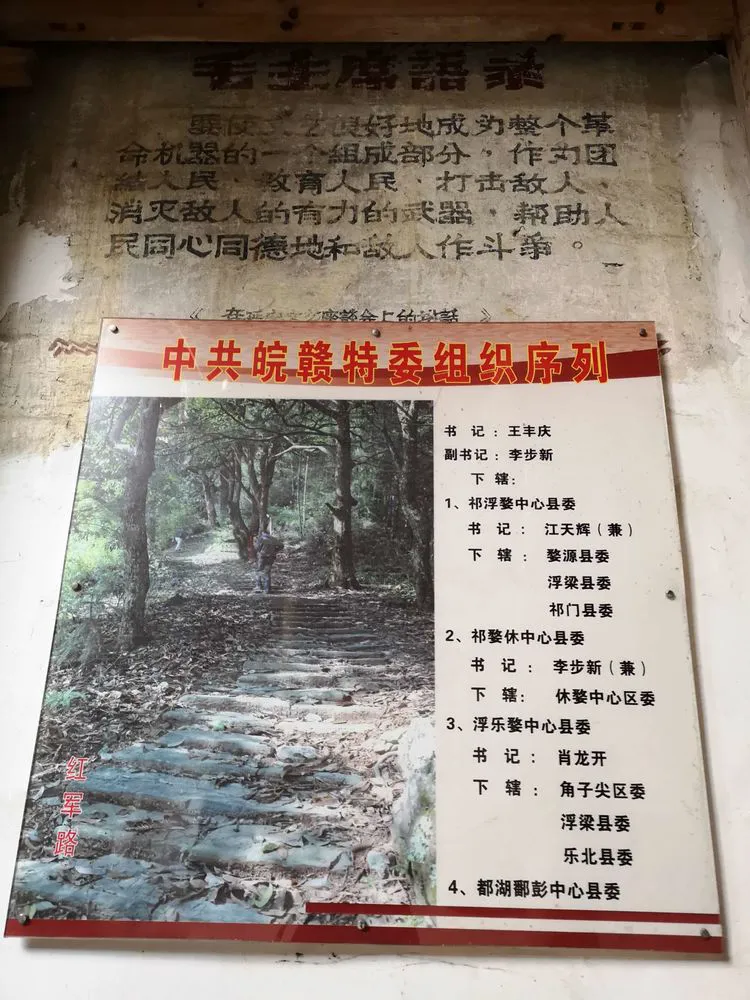 毛主席語录
要使文艺很好地成为整个革
命机器的一个組成部分，作为团
結人民、教育人民、打击敌人、
消灭敌人的有力的武器，帮助人
民同心同德地和敌人作斗爭。
《在延安文艺座談会上的讲話》
中共皖赣特委组织序列
书 记：王丰庆
副书记：李步新
下 辖：
1、祁浮婺中心县委
书 记： 江天辉（兼）
下 辖： 婺源县委
浮梁县委
祁门县委
2、祁婺休中心县委
书 记： 李步新（兼）
下 辖： 休婺中心区委
3、浮乐婺中心县委
书 记： 肖龙开
下 辖： 角子尖区委
浮梁县委
乐北县委
4、都湖鄱彭中心县委
红军路